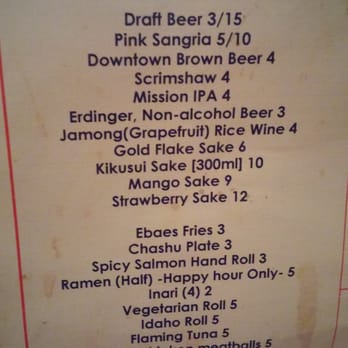 Draft Beer 3/15
Pink Sangria 5/10
Downtown Brown Beer 4
Scrimshaw 4
Mission IPA 4
Erdinger, Non-alcohol Beer 3
Jamong(Grapefruit) Rice Wine 4
Gold Flake Sake 6
Kikusui Sake [300ml] 10
Mango Sake 9
Strawberry Sake 12
Ebaes Fries 3
Chashu Plate 3
Spicy Salmon Hand Roll 3
Ramen (Half) -Happy hour Only- 5
Inari (4) 2
Vegetarian Roll 5
Idaho Roll 5
Flaming Tuna 5
meatballs 5